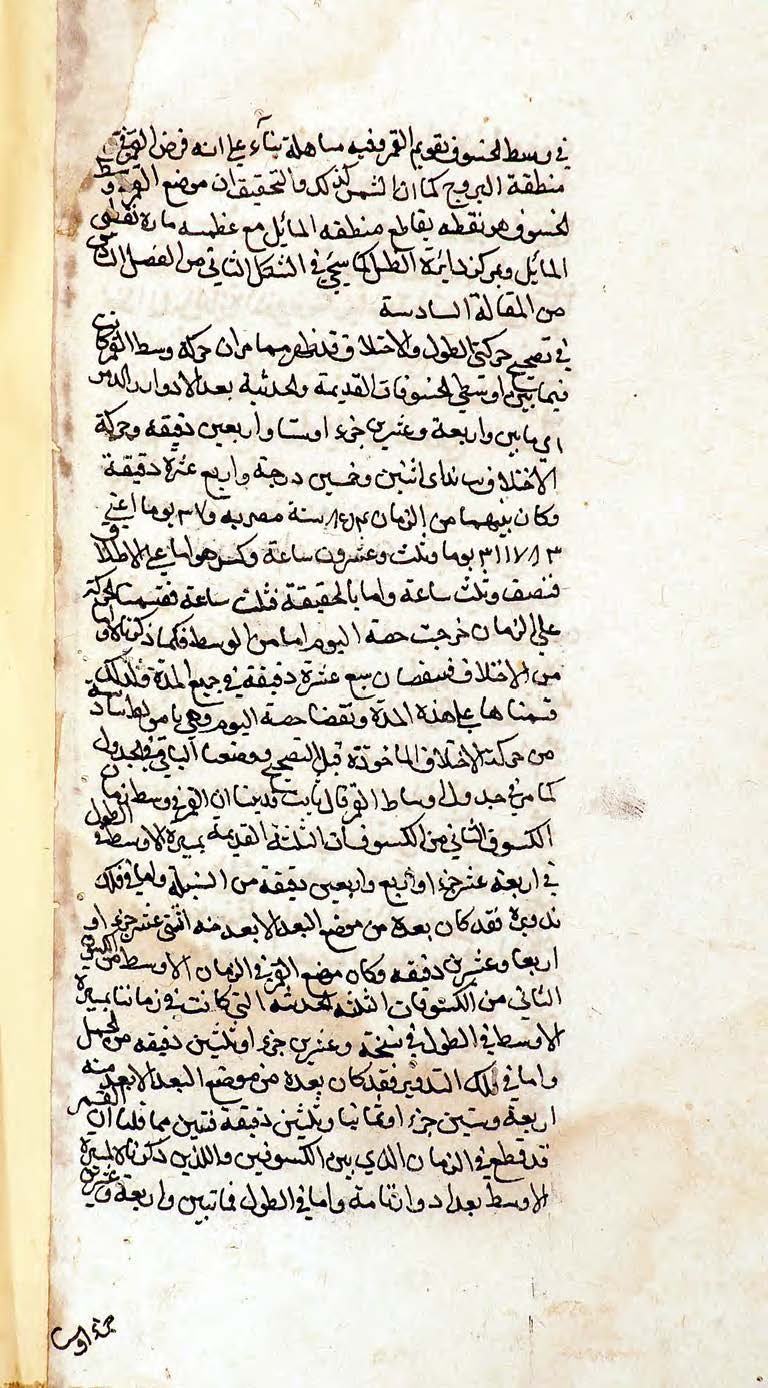 في وسط الخسوف تقويم القمر وفيه مساهلة بناء على انه فرض القمر في
منطقة البروج كما ان الشمس كذلك والتحقيق ان موضع القمر وسط
الخسوف هو نقطه تقاطع منطقه المائل مع عظيمه مارة بقطبي
المائل وبمركز دايرة الظل كما سيجئ في الشكل الثاني من الفصل
من المقالة السادسة
في تصحيح حركتي الطول والاختلاف قد ظهر مما مر ان حركة وسط القمر كانت
فيما بين اوسطي الخسوفات القديمة والحديثة بعد الادوار
اي مايتين واربعة وعشرين جزءا وستا واربعين دقيقه وحركة
الاختلاف اي اثنين وخمسين درجة واربع عشرة دقيقة
وكان بينهما من الزمان سنة مصريه يوما اعني
٣١١٧٨٣ يوما وثلث وعشرون ساعة وكسر هو اما على الاطلاق
فنصف وثلث ساعة واما بالحقيقة فثلث ساعة فقسمنا الحركة
على الزمان خرجت حصة اليوم اما من الوسط فكما ذكرنا اولا واما
من الاختلاف فبنقصان سبع عشرة دقيقة في جميع المدة فلذلك
قسمناها على هذه المدة ونقصنا حصة اليوم وهي سادسة
من حركة الاختلاف الماخوذة قبل التصحيح ووضعنا الباقي في الجدول
كما مر في جدول اوساط القمر قال ثابت قد بينا ان القمر في وسط زمان
الكسوف الثاني من الكسوفات الثلثة القديمة بمسيره الاوسط في الطول
في اربعة عشر جزءا واربع واربعين دقيقة من السنبلة واما في فلك
تدويره فقد كان بعده من موضع البعد الابعد منه اثني عشر جزءا و
اربعا وعشرين دقيقه وكان موضع القمر في الزمان الاوسط من الكسوف
الثاني من الكسوفات الثلثه الحديثة التي كانت في زماننا بمسيره
الاوسط في الطول في تسعة وعشرين جزءا وثلثين دقيقه من الحمل
واما في فلك التدوير فقد كان بعده من موضع البعد الابعد منه
اربعة وستين جزءا وثمانيا وثلثين دقيقة فتبين مما قلنا ان القمر
قد قطع في الزمان الذي بين الكسوفين واللذين ذكرنا بالمسيرة
الاوسط بعد ادوار تامة واما في الطول فمايتين واربعة وعشرين
جزءا وستا